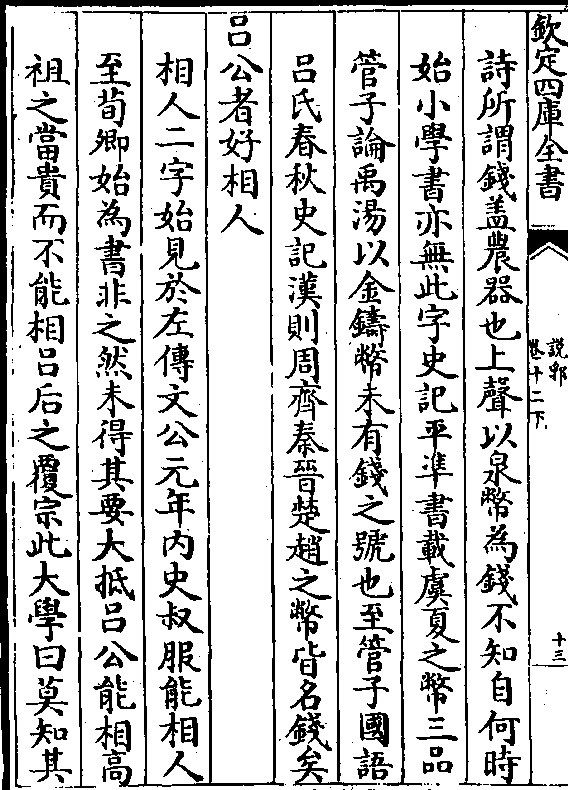 欽定四庫全書
説郛
卷十二下
十三
詩所謂錢盖農器也上聲以泉幣為錢不知自何時
始小學書亦無此字史記平準書載虞夏之幣三品
管子論禹湯以金鑄幣未有錢之號也至管子國語
吕氏春秋史記漢則周齊秦晉楚趙之幣皆名錢矣
吕公者好相人
相人二字始見於左傳文公元年内史叔服能相人
至荀卿始為書非之然未得其要大抵吕公能相高
祖之當貴而不能相吕后之覆宗此大學曰莫知其